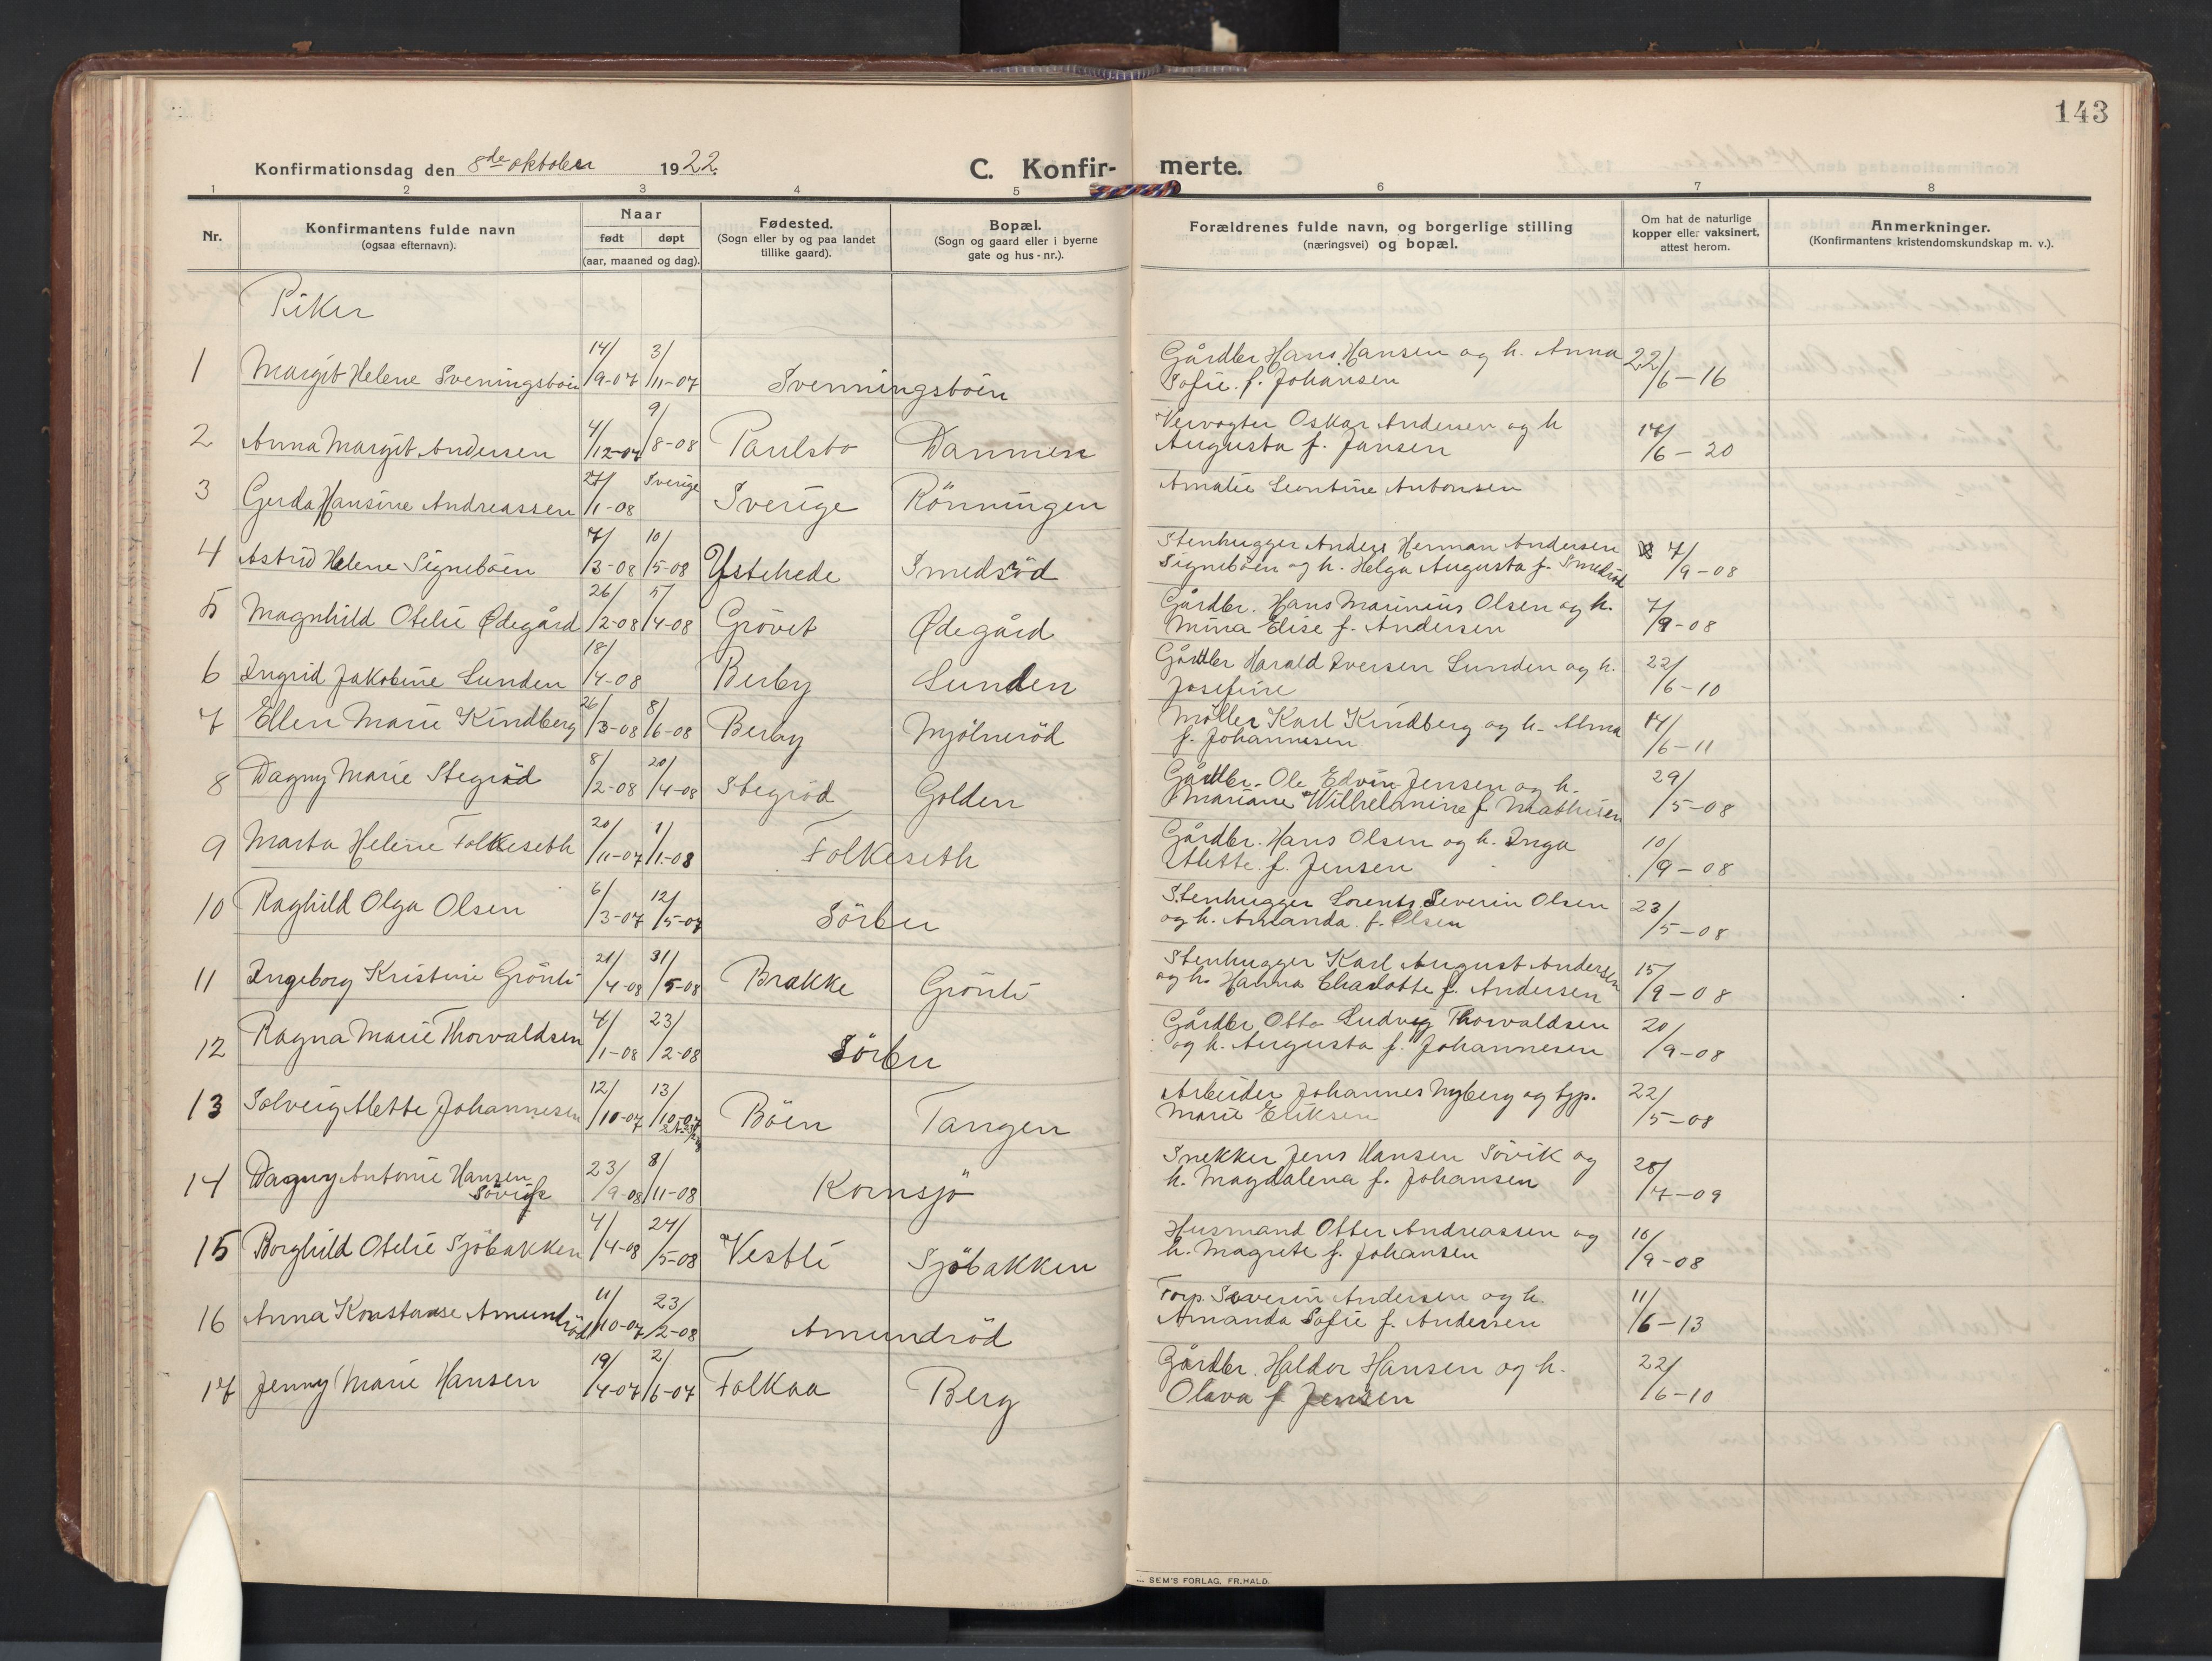 143
Konfirmationsdag den 8de oktober 1922.
C. Konfir- merte.
1 2 3 4 5 6 7 8
Nr.
Konfirmantens fulde navn
(ogsaa efternavn).
Naar
født døpt
(aar, maaned og dag).
Fødested.
(Sogn eller by og paa landet
tillike gaard).
Bopæl.
(Sogn og gaard eller i byerne
gate og hus-nr.).
Forældrenes fulde navn, og borgerlige stilling
(næringsvei) og bopæl.
Om hat de naturlige
kopper eller vaksinert,
attest herom.
Anmerkninger.
(Konfirmantens kristendomskundskap m. v.).
Piker
1 Margit Helene Sveningsböen 14/9-07 3/11-07 Svenningsböen Gårdbr Hans Hansen og h. Anna 22/6-16
Sofie. f. Johansen
2 Anna Margit Andersen 4/12-07 9/8-08 Paulsbo Dammen Vervogter Oskar Andersen og h 17/6-20
Augusta f. Jansen
3 Gerda Hansine Andreassen 27/1-08 Sverige Sverige Rönningen Amalie Leontine Antonsen
4 Astrid Helene Signeböen 7/3-08 10/5-08 Ystehede Smedsröd Stenhugger Anders Herman Andersen 7/9-08
Signeböen og h. Helga Augusta f. Smedsröd
5 Magnhild Otelie Ødegård 26/2-08 5/4-08 Grövet Ødegård Gårdbr. Hans Marinius Olsen og h. 7/9-08
Mina Elise f. Andersen
6 Ingrid Jakobine Lunden 18/4-08 Berby Lunden Gårdbr Harald Iversen Lunden og h. 22/6-10
Josefine
7 Ellen Marie Kindberg 26/3-08 8/6-08 Berby Mjölneröd Möller Karl Kindberg og h. Alma 14/6-11
f. Johannesen
8 Dagny Marie Stegröd 8/2-08 20/4-08 Stegröd Golden Gårdbr. Ole Edvin Jensen og h. 29/5-08
Mariane Wilhelmine f Mathisen
9 Marta Helene Folkeseth 20/11-07 1/1-08 Folkeseth Gårdbr. Hans Olsen og h. Inga 10/9-08
Alette. f. Jensen
10 Raghild Olga Olsen 6/3-07 12/5-07 Sörbu Stenhugger Lorents Severin Olsen 23/5-08
og h. Amanda. f. Olsen
11 Ingeborg Kristine Grönli 21/4-08 31/5-08 Brakke Grönli Stenhugger Karl August Andersen 15/9-08
og h. Hanna Charlotte f. Andersen
12 Ragna Marie Thorvaldsen 4/1-08 23/2-08 Sörbu Gårdbr Otto Ludvig Thorvaldsen 20/9-08
og h. Augusta f. Johannesen
13 Solveig Alette Johannesen 12/10-07 13/10-07 Böen Tangen Arbeider Johannes Nyberg og typ. 22/5-08
Marie Eriksen
14 Dagny Antonie Hansen 23/9-08 8/11-08 Kornsjö Snekker Jens Hansen Sövik og 28/7-09
Sövik h. Magdalena f. Johansen
15 Borghild Otelie Sjöbakken 4/4-08 24/5-08 Vestli Sjöbakken Husmand Otter Andreassen og 10/9-08
h. Magrete f. Johansen
16 Anna Konstanse Amundröd 11/10-07 23/2-08 Amundröd Forp. Severin Andersen og h. 11/6-13
Amanda Sofie f. Andersen
17 Jenny Marie Hansen 19/4-07 2/6-07 Folkaa Berg Gårdbr. Haldor Hansen og h. 22/6-10
Olava f Jensen
SEM'S FORLAG, FR.HALD.